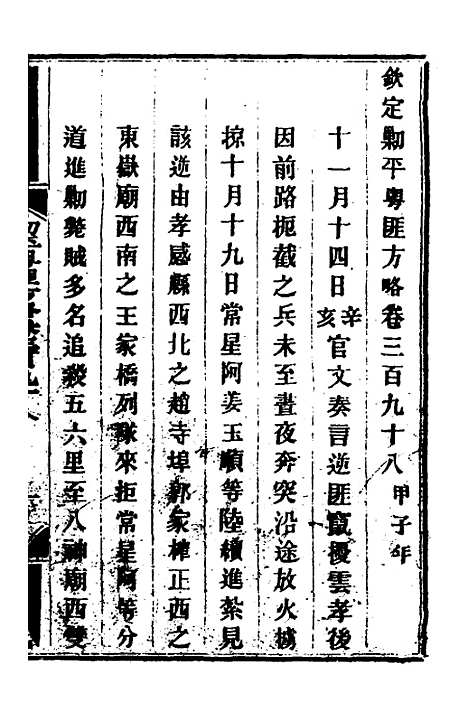 欽定剿平粵匪方略卷三百九十八 甲子年
十一月十四日辛亥官文奏言逆匪竄擾雲孝後
因前路扼截之兵未至晝夜奔突沿途放火擄
掠十月十九日常星阿姜玉順等陸續進紮見
該逆由孝感縣西北之趙寺埠郭家榨正西之
東嶽廟西南之王家橋列隊來拒常星阿等分
道進剿斃賊多名追殺五六里至八神廟西雙